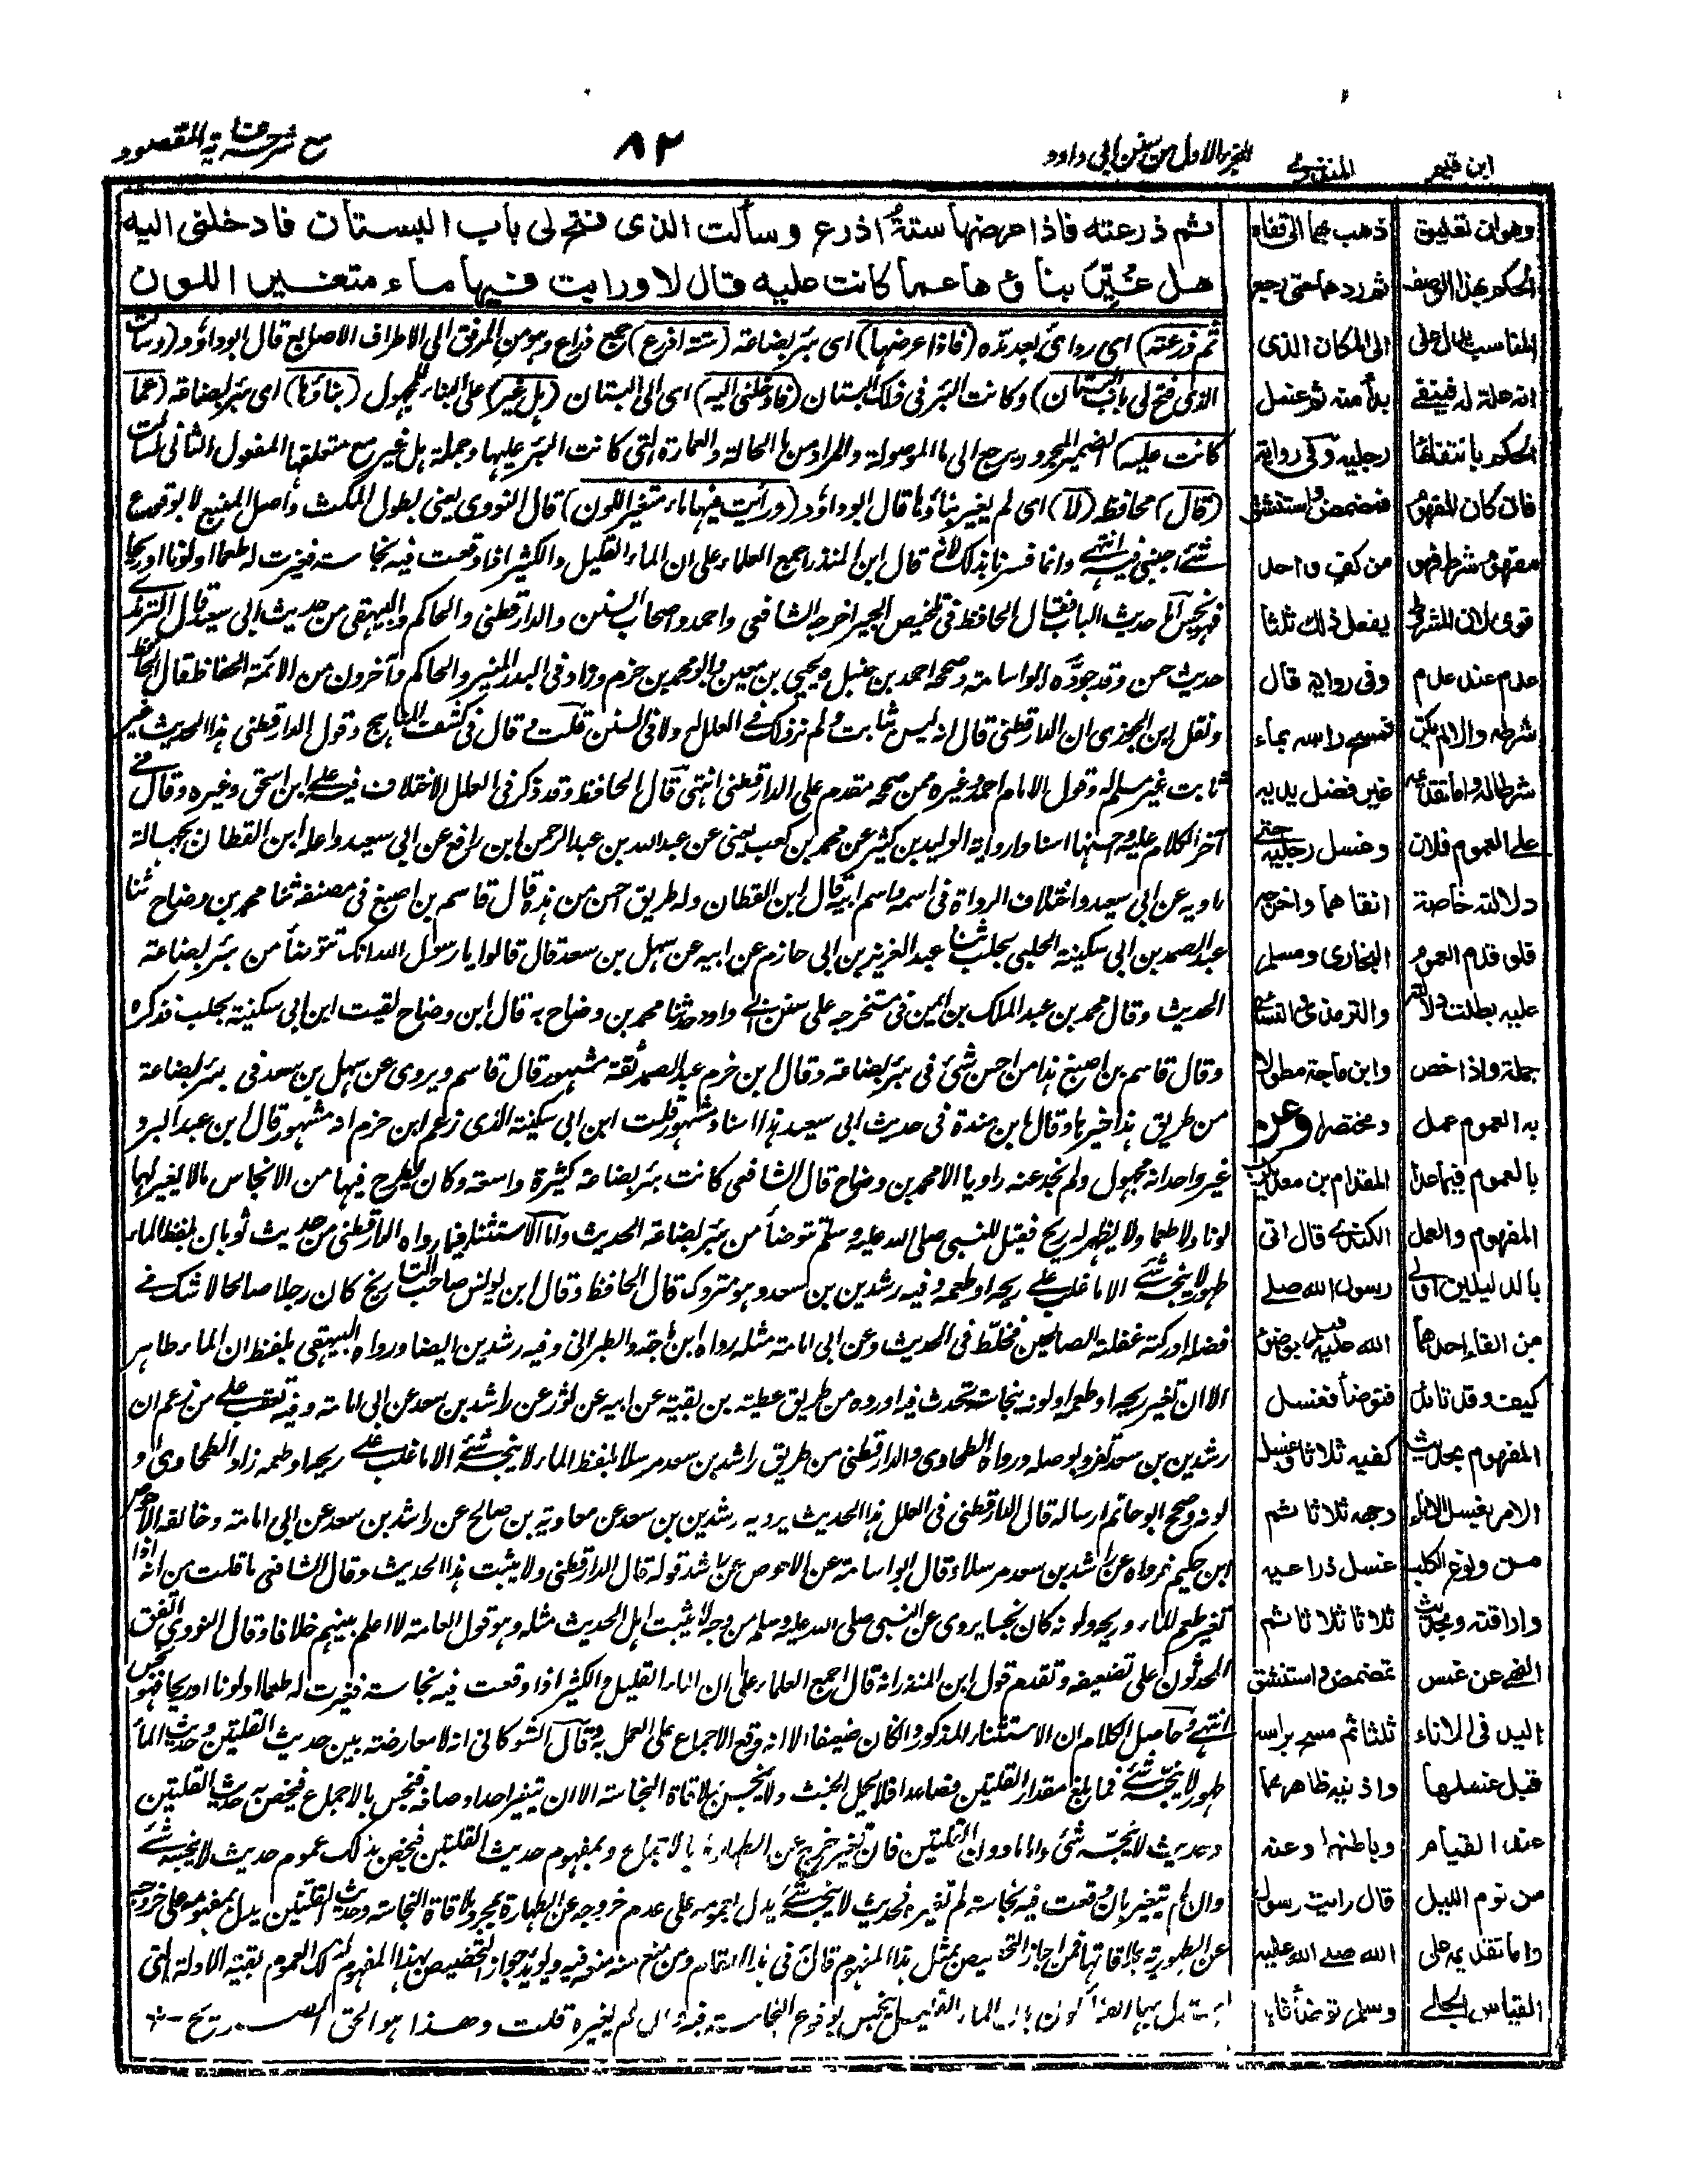 ابن قيم
المنذري
الجزء الاول من سنن ابي داود
٨٢
مع شرحه غاية المقصود
ثم ذرعته فاذا عرضها ستة اذرع وسألت الذى فتح لى باب البستان فادخلنى اليه
هل غُيِّرَ بناؤها عما كانت عليه قال لا ورايت فيها ماء متغير اللون
(ثم ذرعته) اى ردائى بعد مده (فاذا عرضها) اى بئر بضاعة (ستة اذرع) جمع ذراع وهو من المرفق الى الاطراف الاصابع قال ابو داؤد (وسالت
الذى فتح لى باب البستان) وكانت البئر فى ذلك البستان (فادخلنى اليه) اى الى البستان (هل غير) على البناء للمجهول (بناؤها) اى بئر بضاعة (عما
كانت عليه) الضمير المجرور يرجع الى ما الموصولة والمراد من ما الحالة والعمارة التى كانت البئر عليها وجملة هل غير مع متعلقها المفعول الثانى لسالت
(قال) محافظ (لا) اى لم يغير بناؤها قال ابو داؤد (ورايت فيها ماء متغير اللون) قال النووى يعنى بطول المكث واصل المنبع لا بوقوع
شئ اجنبى فيه انتهى وانما فسرنا بذلك لانه قال ابن المنذر اجمع العلماء على ان الماء القليل والكثير اذا وقعت فيه نجاسة فغيرت له طعما او لونا او ريحا
فهو نجس اما حديث الباب فقال الحافظ فى تلخيص الحبير اخرجه الشافعى واحمد واصحاب السنن والدارقطنى والحاكم والبيهقى من حديث ابى سعيد قال الترمذى
حديث حسن وقد جوده ابو اسامة وصححه احمد بن حنبل ويحيى بن معين وابو محمد بن حزم وزاد فى البدر المنير والحاكم وآخرون من الائمة الحفاظ قال الحافظ
ونقل ابن الجوزى ان الدارقطنى قال انه ليس بثابت ولم نر ذلك فى العلل له ولا فى السنن قلت وقال فى كشف المناهج وقول الدارقطنى هذا الحديث غير
ثابت غير مسلم له وقول الامام احمد وغيره ممن صححه مقدم على الدارقطنى انتهى قال الحافظ وقد ذكر فى العلل الاختلاف فيه على ابن اسحق وغيره وقال فى
آخر الكلام عليه واحسنها اسنادا رواية الوليد بن كثير عن محمد بن كعب يعنى عن عبد الله بن عبد الرحمن ابن رافع عن ابى سعيد واعله ابن القطان بجهالة
راويه عن ابى سعيد واختلاف الرواة فى اسمه واسم ابيه قال ابن القطان وله طريق احسن من هذه قال قاسم بن اصبغ فى مصنفه ثنا محمد بن وضاح ثنا
عبد الصمد بن ابى سكينة الحلبى بحلب ثنا عبد العزيز بن ابى حازم عن ابيه عن سهل بن سعد قال قالوا يا رسول الله انك تتوضأ من بئر بضاعة
الحديث وقال محمد بن عبد الملك بن ايمن فى مستخرجه على سنن ابى داود حدثنا محمد بن وضاح به قال ابن وضاح لقيت ابن ابى سكينة بحلب فذكره
وقال قاسم بن اصبغ هذا من احسن شئ فى بئر بضاعة وقال ابن حزم عبد الصمد ثقة مشهور قال قاسم ويروى عن سهل بن سعد فى بئر بضاعة
من طريق هذا خيرها وقال ابن مندة فى حديث ابى سعيد هذا اسناد مشهور قلت ابن ابى سكينة الذى زعم ابن حزم انه مشهور قال ابن عبد البر و
غير واحد انه مجهول ولم نجد عنه راويا الا محمد بن وضاح قال الشافعى كانت بئر بضاعة كثيرة واسعة وكان يطرح فيها من الانجاس مالا يغير لها
لونا ولا طعما ولا يظهر له ريح فقيل للنبى صلى الله عليه وسلم تتوضأ من بئر بضاعة الحديث واما الاستثناء فيما رواه الدارقطنى من حديث ثوبان بلفظ الماء
طهور لا ينجسه شئ الا ما غلب على ريحه او طعمه وفيه رشدين بن سعد وهو متروك قال الحافظ وقال ابن يونس صاحب التاريخ كان رجلا صالحا لا شك فى
فضله ادركته غفلة الصالحين فخلط فى الحديث وعن ابى امامة مثله رواه ابن ماجة والطبرانى وفيه رشدين ايضا ورواه البيهقى بلفظ ان الماء طاهر
الا ان تغير ريحه او طعمه او لونه بنجاسة تحدث فيه اورده من طريق عطية بن بقية عن ابيه عن ثور عن راشد بن سعد عن ابى امامة وفيه تعقب على من زعم ان
رشدين بن سعد تفرد بوصله ورواه الطحاوى والدارقطنى من طريق راشد بن سعد مرسلا بلفظ الماء لا ينجسه شئ الا ما غلب على ريحه او طعمه زاد الطحاوى او
لونه وصحح ابو حاتم ارساله قال الدارقطنى فى العلل هذا الحديث يرويه رشدين بن سعد عن معاوية بن صالح عن راشد بن سعد عن ابى امامة وخالفه الاحوص
ابن حكيم فرواه عن راشد بن سعد مرسلا وقال ابو اسامة عن الاحوص عن راشد قوله قال الدارقطنى ولا يثبت هذا الحديث وقال الشافعى ما قلت من انه اذا
تغير طعم الماء وريحه ولونه كان نجسا يروى عن النبى صلى الله عليه وسلم من وجه لا يثبت اهل الحديث مثله وهو قول العامة لا اعلم بينهم خلافا وقال النووى اتفق
المحدثون على تضعيفه وتقدم قول ابن المنذر انه قال اجمع العلماء على ان الماء القليل والكثير اذا وقعت فيه نجاسة فغيرت له طعما او لونا او ريحا فهو نجس
انتهى وحاصل الكلام ان الاستثناء المذكور وان كان ضعيفا الا انه وقع الاجماع على العمل به وقال الشوكانى انه لا معارضة بين حديث القلتين وحديث الماء
طهور لا ينجسه شئ فما بلغ مقدار القلتين فصاعدا فلا يحمل الخبث ولا ينجس بملاقاة النجاسة الا ان يتغير احد اوصافه فنجس بالاجماع فيخص به حديث القلتين
وحديث لا ينجسه شئ واما ما دون القلتين فان تغير خرج عن الطهارة بالاجماع وبمفهوم حديث القلتين فيخص بذلك عموم حديث لا ينجسه شئ
وان لم يتغير بان وقعت فيه نجاسة لم تغيره فحديث لا ينجسه شئ يدل بعمومه على عدم خروجه عن الطهارة بمجرد ملاقاة النجاسة وحديث القلتين يدل بمفهومه على خروجه
عن الطهورية بملاقاتها فمن اجاز التخصيص بمثل هذا المفهوم قال به فى هذا المقام ومن منع منه منعه فيه ويؤيد جواز التخصيص بهذا المفهوم لذلك العموم بقية الادلة التى
استدل بها القائلون بان الماء القليل ينجس بوقوع النجاسة فيه وان لم يغيره قلت وهذا هو الحق الصريح
ذهب بهما الى قفاه
ثم ردهما حتى رجع
الى المكان الذى
بدأ منه ثم غسل
رجليه وفى رواية
فمضمض واستنشق
من كف واحد
يفعل ذلك ثلثا
وفى رواية قال
فمسح راسه بماء
غير فضل يديه
وغسل رجليه حتى
انقاهما واخرجه
البخارى ومسلم
والترمذى والنسائى
وابن ماجة مطولا
ومختصرا وعن
المقدام بن معديكرب
الكندى قال اتى
رسول الله صلى
الله عليه وسلم بوضوء
فتوضأ فغسل
كفيه ثلاثا وغسل
وجهه ثلاثا ثم
غسل ذراعيه
ثلاثا ثلاثا ثم
تمضمض واستنشق
ثلثا ثم مسح براسه
واذنيه ظاهرهما
وباطنهما وعنه
قال رايت رسول
الله صلى الله عليه
وسلم توضأ فلما
وهو ان تعليق
الحكم بهذا الوصف
المناسب يدل على
انه علة له فينتفى
الحكم بانتفائها
فان كان المفهوم
مفهوم شرط فهو
قوى لان المشروط
عدم عند عدم
شرطه والا لم يكن
شرطا له واما تقديمه
على العموم فلان
دلالته خاصة
فلو قدم العموم
عليه بطلت دلالته
جملة واذا خص
به العموم عمل
بالعموم فيما عدا
المفهوم والعمل
بالدليلين اولى
من الغاء احدهما
كيف وقد تايد
المفهوم بحديث
الامر بغسل الاناء
من ولوغ الكلب
واراقته وبحديث
النهى عن غمس
اليد فى الاناء
قبل غسلها
عند القيام
من نوم الليل
واما تقديمه على
القياس الجلى